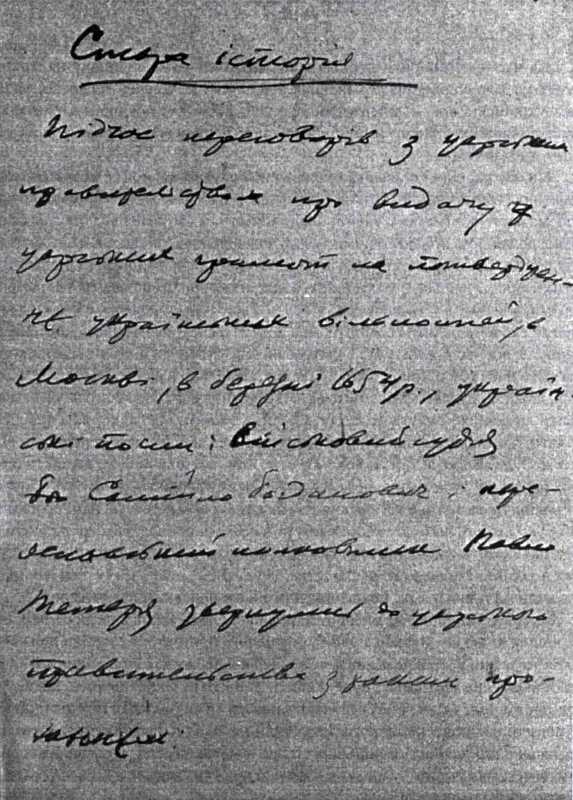 Стара історія
Підчас переговорів з царським
правительством про видачу
царських грамот на потвержден-
нє українських вільностей, в
Москві, в березні 1654 р., україн-
ські посли: військовий суддя
Самійло Богданович і пере-
яславський полковник Павло
Тетеря звернулись до царського
правительства з таким про-